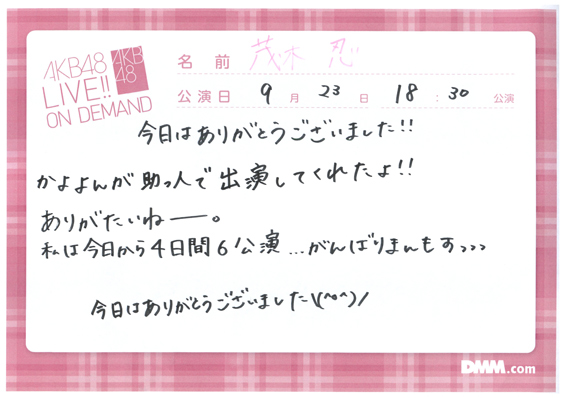 AKB48
LIVE!!
ON DEMAND
AKB
48
名前 茂木 忍
公演日 9月23日 18:30 公演
今日はありがとうございました!!
かよよんが助っ人で出演してくれたよ!!
ありがたいねー。
私は今日から4日間6公演…がんばりまんもすっっっ
今日はありがとうございました\(^o^)/
DMM.com